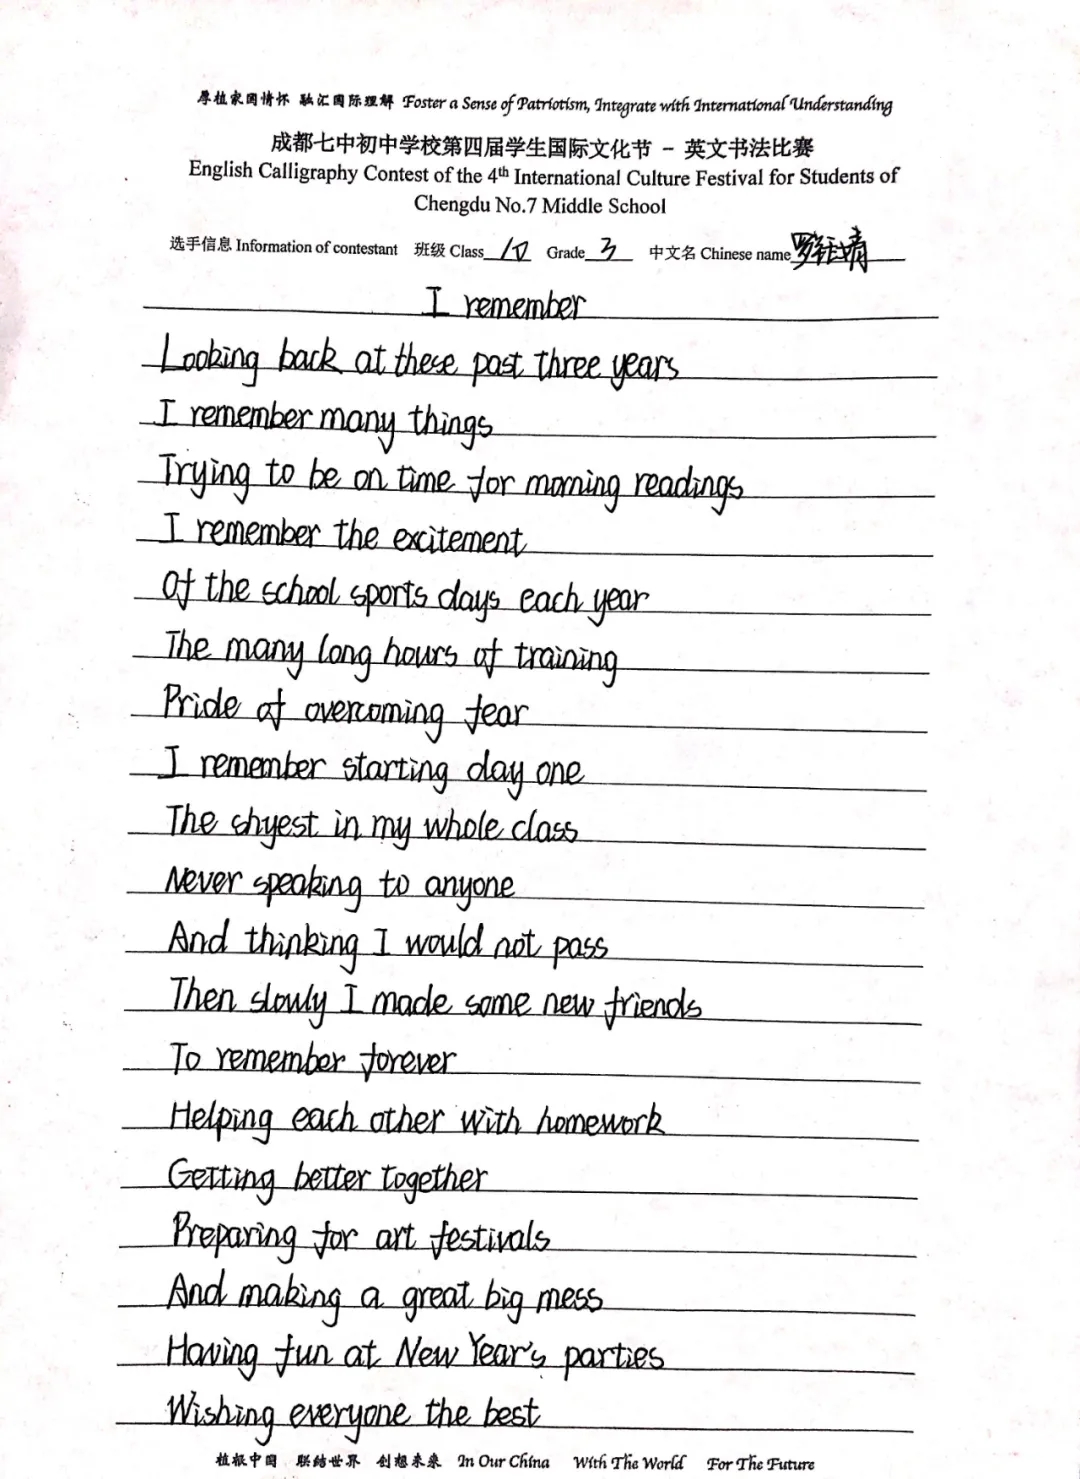 厚植家国情怀 融汇国际理解 Foster a Sense of Patriotism, Integrate with International Understanding
成都七中初中学校第四届学生国际文化节 - 英文书法比赛
English Calligraphy Contest of the 4th International Culture Festival for Students of
Chengdu No.7 Middle School
选手信息 Information of contestant 班级 Class Grade 3 中文名 Chinese name
I remember
Looking back at these past three years
I remember many things
Trying to be on time for morning readings
I remember the excitement
Of the school sports days each year
The many long hours of training
Pride of overcoming fear
I remember starting day one
The shyest in my whole class
Never speaking to anyone
And thinking I would not pass
Then slowly I made some new friends
To remember forever
Helping each other with homework
Getting better together
Preparing for art festivals
And making a great big mess
Having fun at New Year's parties
Wishing everyone the best
植根中国 联结世界 创想未来 In Our China With The World For The Future